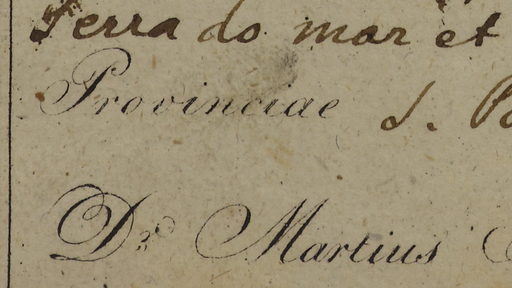 Serra do mar et
Provinciae S. Pa
Dr. Martius